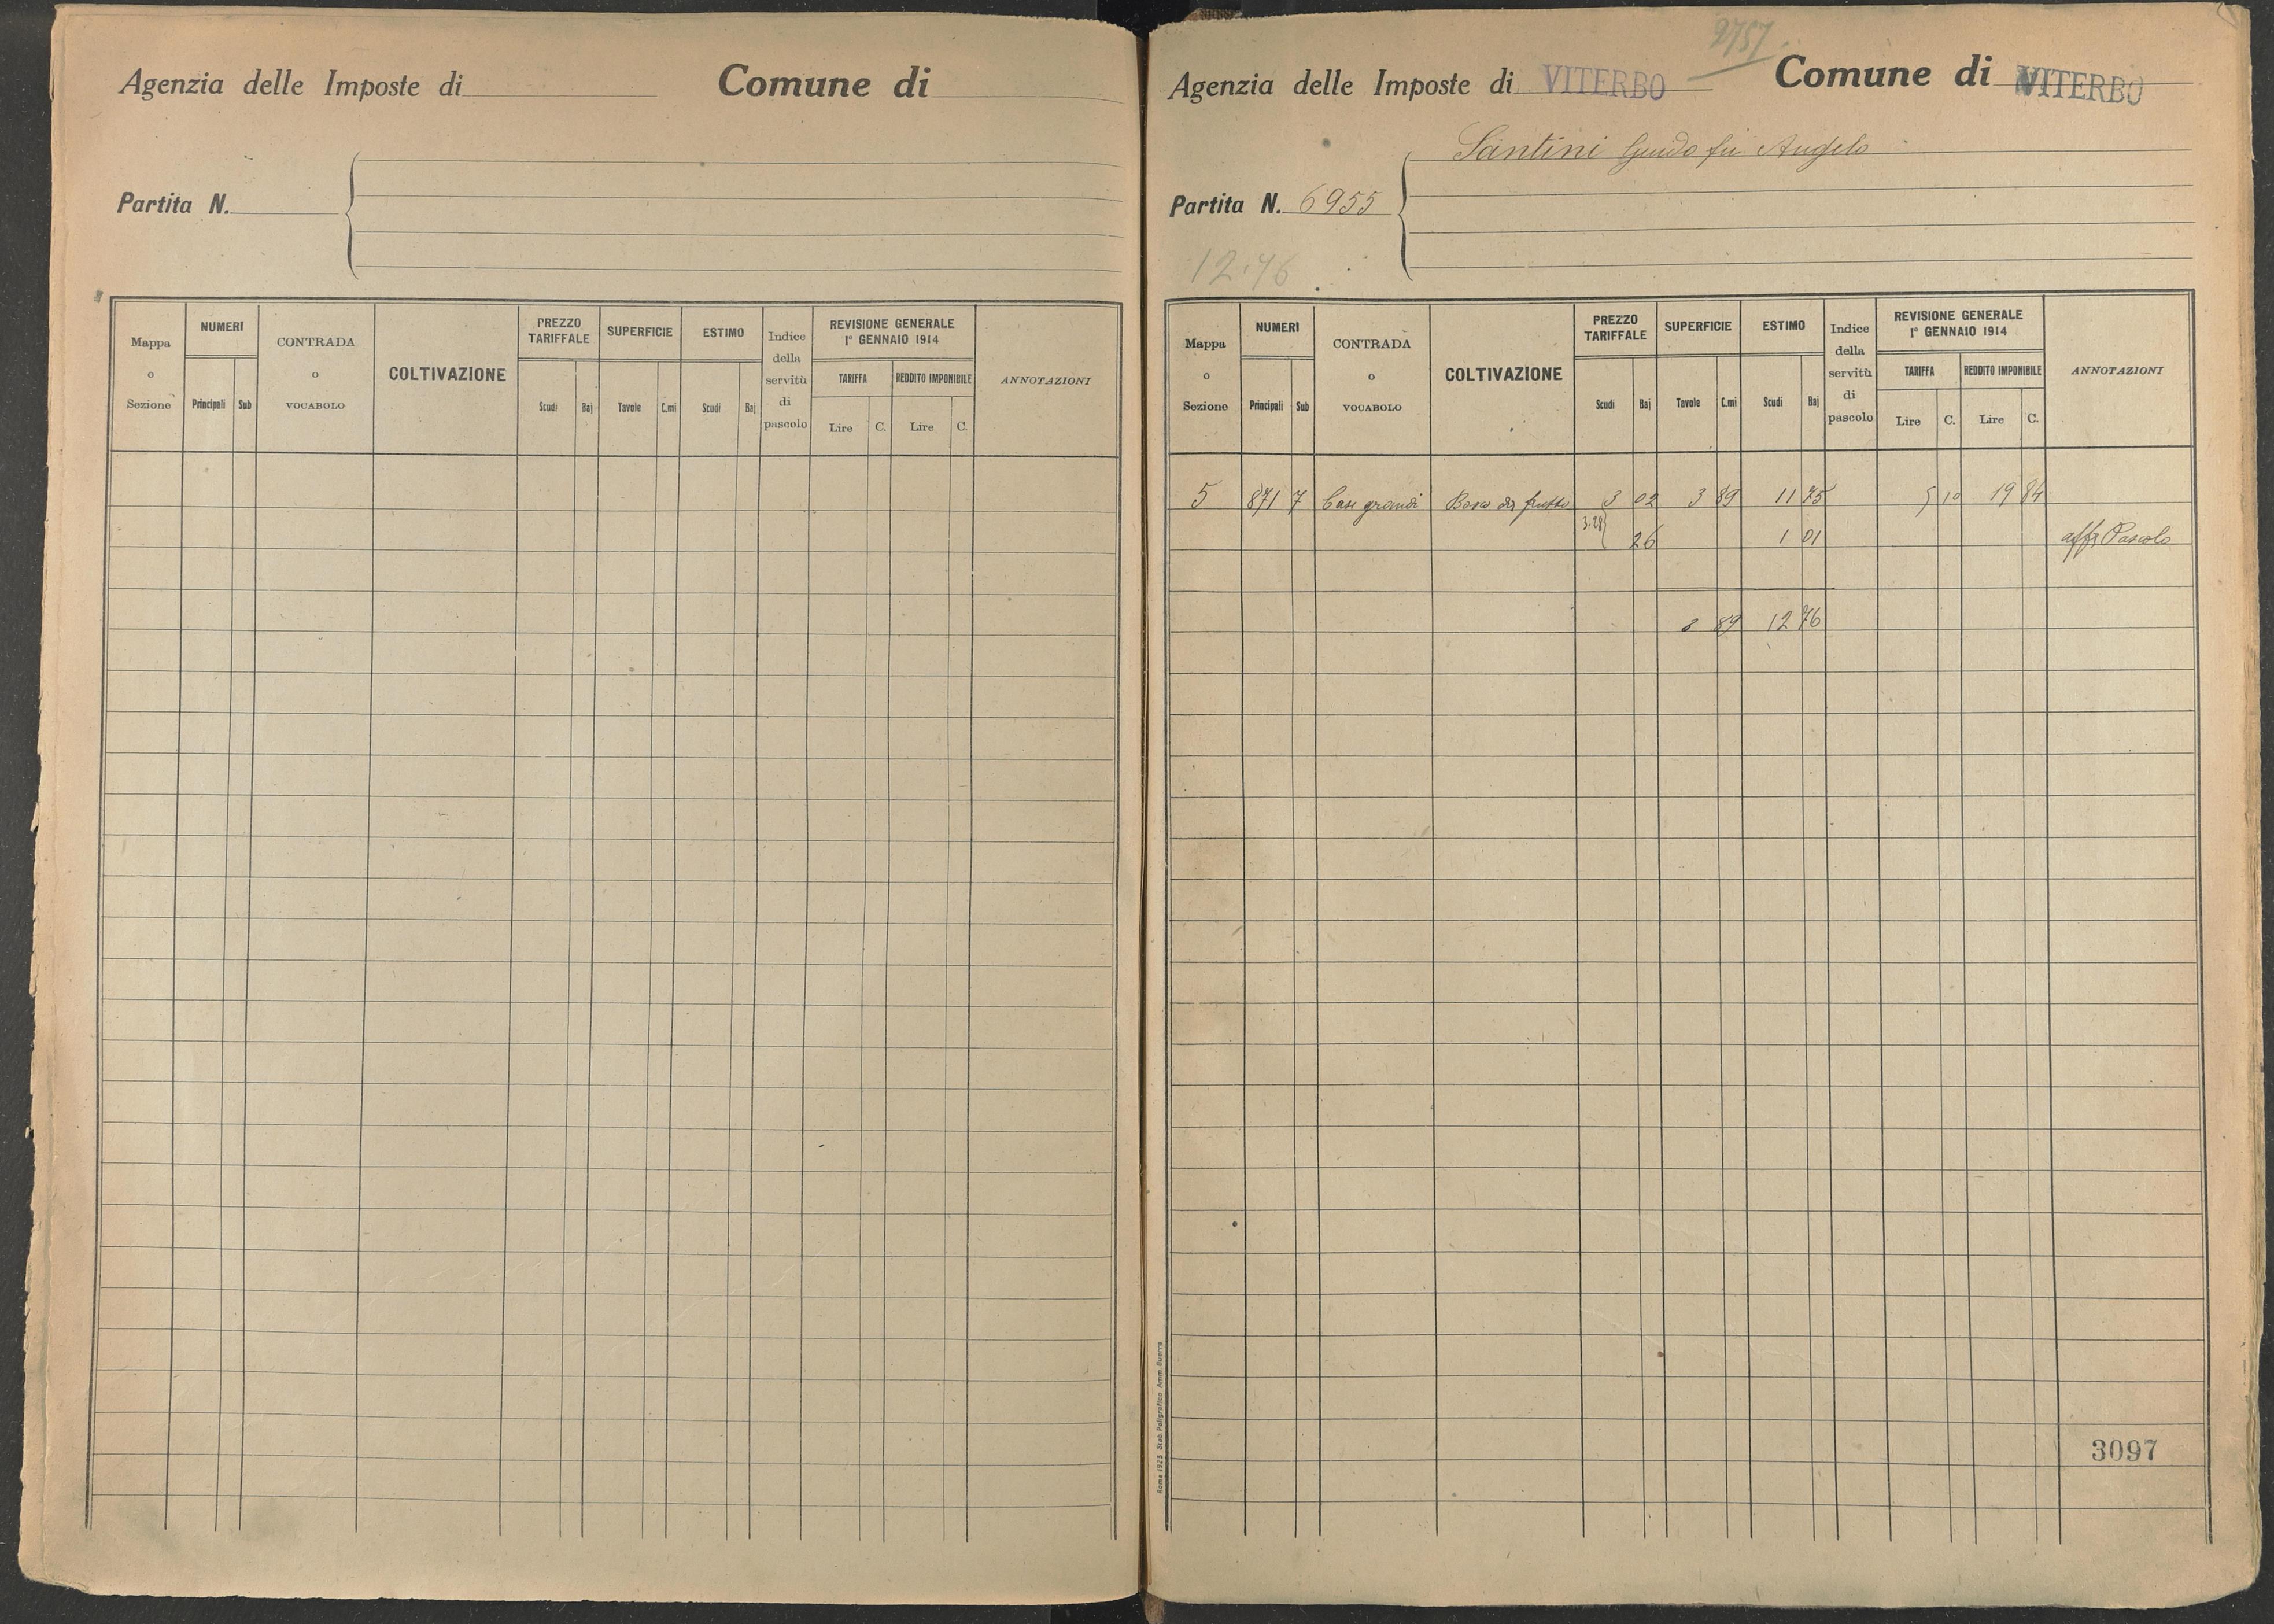 Agenzia delle Imposte di Comune di
Partita N.
Mappa o Sezione NUMERI Principali Sub CONTRADA o VOCABOLO COLTIVAZIONE PREZZO TARIFFALE Scudi Baj SUPERFICIE Tavole C.mi ESTIMO Scudi Baj Indice della servitù di pascolo REVISIONE GENERALE 1° GENNAIO 1914 TARIFFA Lire C. REDDITO IMPONIBILE Lire C. ANNOTAZIONI
2757
Agenzia delle Imposte di VITERBO Comune di VITERBO
Santini Guido fu Angelo
Partita N. 6955
12.76
Mappa o Sezione NUMERI Principali Sub CONTRADA o VOCABOLO COLTIVAZIONE PREZZO TARIFFALE Scudi Baj SUPERFICIE Tavole C.mi ESTIMO Scudi Baj Indice della servitù di pascolo REVISIONE GENERALE 1° GENNAIO 1914 TARIFFA Lire C. REDDITO IMPONIBILE Lire C. ANNOTAZIONI
5 871 7 Case grandi Bosco da frutto 3 02 3 89 11 75 5 10 19 84
3.28 26 1 01 affr Pascolo
3 89 12 76
3097
Roma 1923 Stab. Poligrafico Amm. Guerra